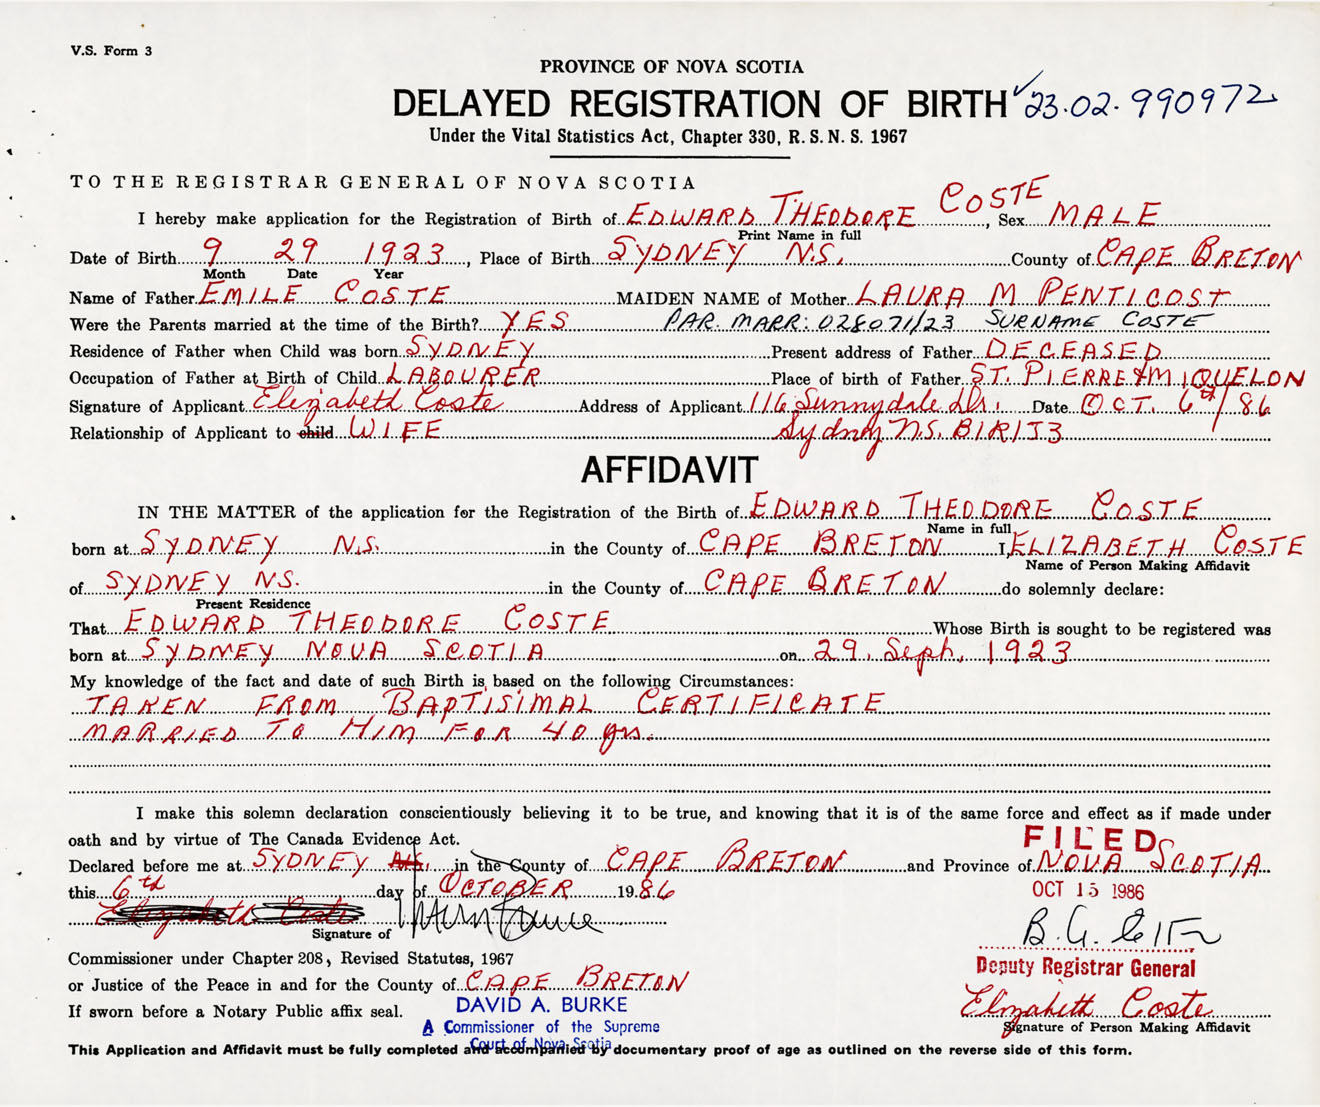 V.S. Form 3
PROVINCE OF NOVA SCOTIA
DELAYED REGISTRATION OF BIRTH ✓23.02.990972
Under the Vital Statistics Act, Chapter 330, R. S. N. S. 1967
TO THE REGISTRAR GENERAL OF NOVA SCOTIA
I hereby make application for the Registration of Birth of EDWARD THEODORE COSTE, Sex MALE
Print Name in full
Date of Birth 9 29 1923, Place of Birth SYDNEY N.S. County of CAPE BRETON
Month Date Year
Name of Father EMILE COSTE MAIDEN NAME of Mother LAURA M PENTICOST
Were the Parents married at the time of the Birth? YES PAR. MARR: 028071/23 SURNAME COSTE
Residence of Father when Child was born SYDNEY Present address of Father DECEASED
Occupation of Father at Birth of Child LABOURER Place of birth of Father ST. PIERRE & MIQUELON
Signature of Applicant Elizabeth Coste Address of Applicant 116 Sunnydale Dr. Date OCT. 6th/86
Relationship of Applicant to child WIFE Sydney N.S. B1R1J3
AFFIDAVIT
IN THE MATTER of the application for the Registration of the Birth of EDWARD THEODORE COSTE
Name in full
born at SYDNEY N.S. in the County of CAPE BRETON I, ELIZABETH COSTE
Name of Person Making Affidavit
of SYDNEY N.S. in the County of CAPE BRETON do solemnly declare:
Present Residence
That EDWARD THEODORE COSTE Whose Birth is sought to be registered was
born at SYDNEY NOVA SCOTIA on 29. Seph. 1923
My knowledge of the fact and date of such Birth is based on the following Circumstances:
TAKEN FROM BAPTISIMAL CERTIFICATE
MARRIED TO HIM FOR 40 yrs.
I make this solemn declaration conscientiously believing it to be true, and knowing that it is of the same force and effect as if made under
oath and by virtue of The Canada Evidence Act.
FILED
Declared before me at SYDNEY N.S. in the County of CAPE BRETON and Province of NOVA SCOTIA
this 6th day of OCTOBER 1986
OCT 15 1986
Elizabeth Coste
Signature of
Commissioner under Chapter 208, Revised Statutes, 1967
Deputy Registrar General
or Justice of the Peace in and for the County of CAPE BRETON
If sworn before a Notary Public affix seal. DAVID A. BURKE
Elizabeth Coste
A Commissioner of the Supreme
Signature of Person Making Affidavit
Court of Nova Scotia
This Application and Affidavit must be fully completed and accompanied by documentary proof of age as outlined on the reverse side of this form.